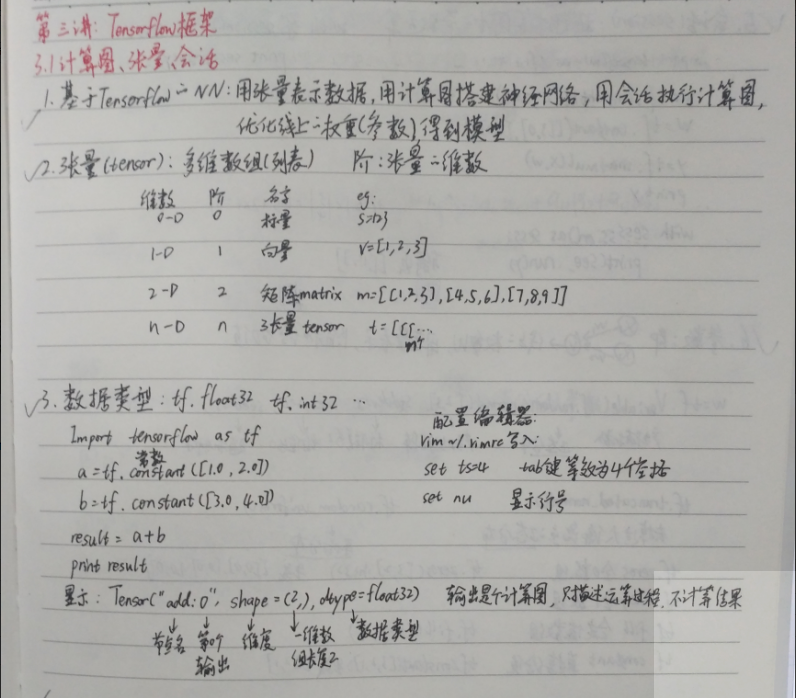 第三讲: Tensorflow框架
3.1计算图、张量、会话
1. 基于Tensorflow的NN: 用张量表示数据, 用计算图搭建神经网络, 用会话执行计算图,
优化线上的权重(参数), 得到模型
2. 张量(tensor): 多维数组(列表) 阶: 张量的维数
维数 阶 名字 eg:
0-D 0 标量 s=123
1-D 1 向量 v=[1,2,3]
2-D 2 矩阵matrix m=[[1,2,3],[4,5,6],[7,8,9]]
n-D n 张量tensor t=[[[...
n个
3. 数据类型: tf.float32 tf.int32 ...
配置编辑器:
Import tensorflow as tf vim ~/.vimrc写入:
常数
a=tf.constant([1.0, 2.0]) set ts=4 tab键等效为4个空格
b=tf.constant([3.0, 4.0]) set nu 显示行号
result=a+b
print result
显示: Tensor("add:0", shape=(2,), dtype=float32) 输出是个计算图, 只描述运算过程, 不计算结果
节点名 第0个 维度 一维数 数据类型
输出 组长度2